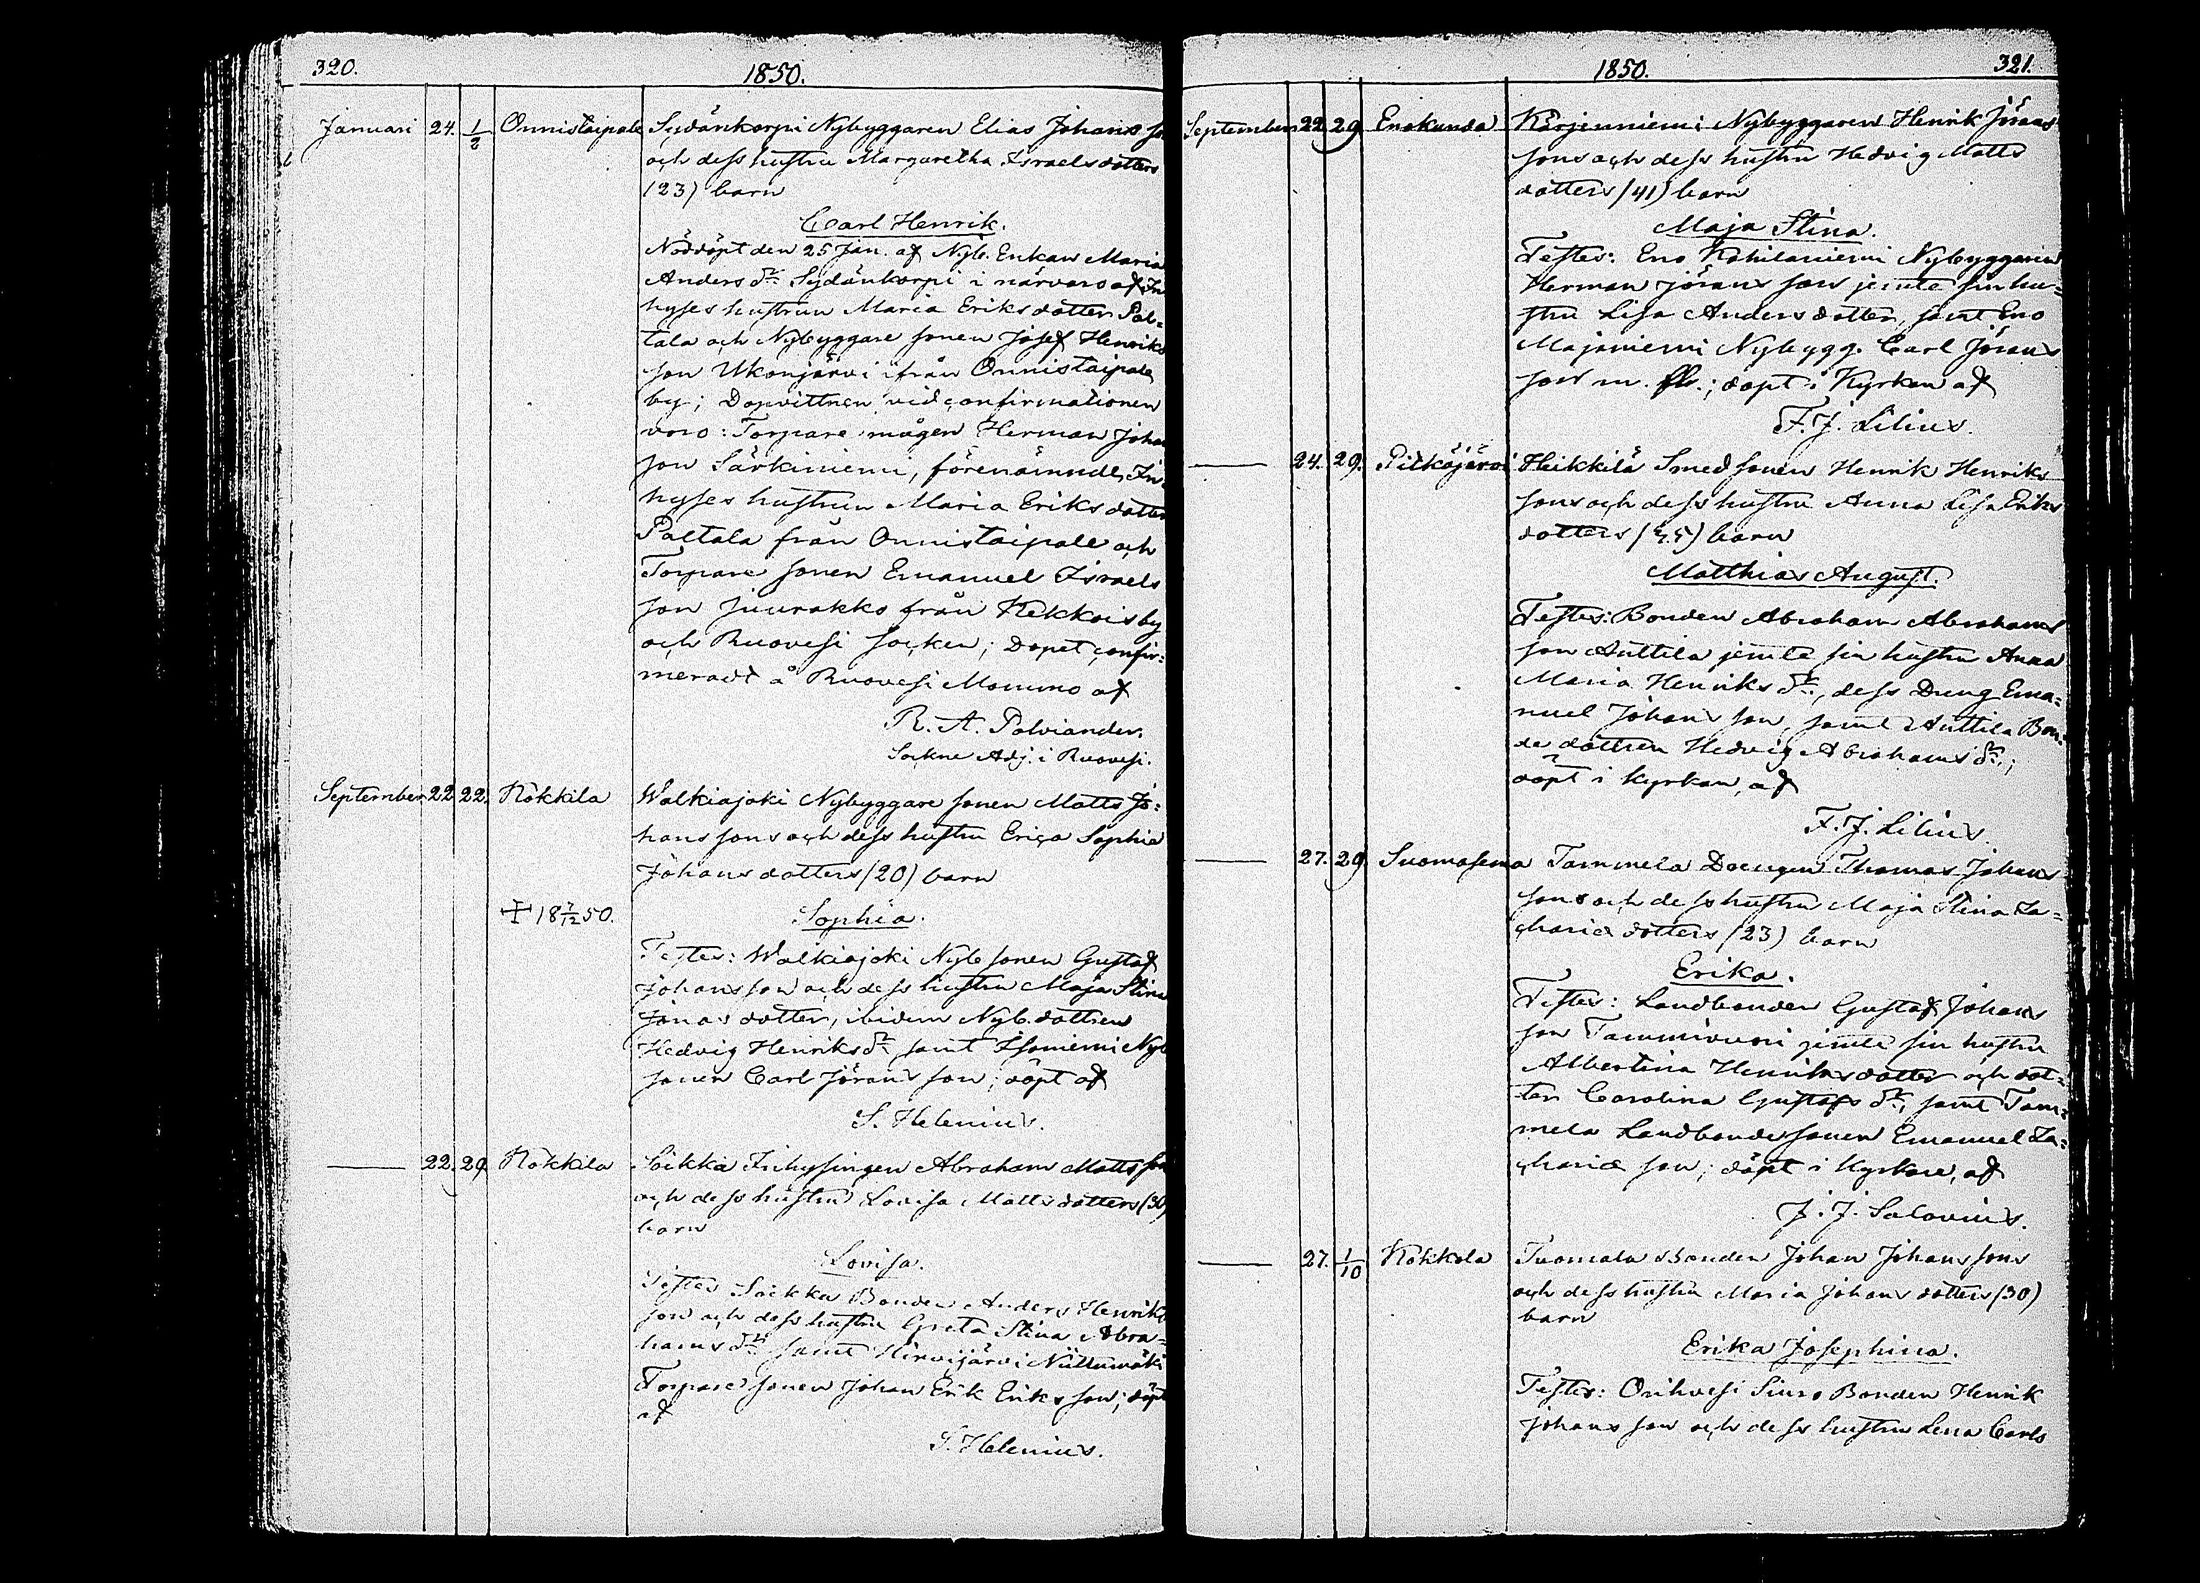 320.
1850.
Januari 24. 1/2 Onnistaipale Sydänkorpi Nybyggaren Elias Johans so
och dess hustru Margaretha Israelsdotters
(23) barn
Carl Henrik.
Nöddöpt den 25 Jan. af Nyb. Enkan Maria
Anders dr. Sydänkorpi i närvaro af In
hyses hustrun Maria Eriksdotter Pal-
tala och Nybyggare sonen Josef Henriks
son Ukonjärvi ifrån Onnistaipale
by; Dopvittnen vid confirmationen
voro: Torpare mågen Herman Johan
son Särkiniemi, förenämnde In
hyses hustrun Maria Eriksdotter
Paltala från Onnistaipale och
Torpare sonen Emanuel Israels
son Juurakko från Pekkois by
och Ruovesi socken; Dopet confir-
meradt å Ruovesi Mommo af
R. A. Polviander.
Sockne Adj. i Ruovesi.
September 22. 22. Rökkila Walkiajoki Nybyggare sonen Matts Jo-
hans sons och dess hustru Erica Sophia
Johansdotters (20) barn
18 7/12 50. Sophia.
Testes: Walkiajoki Nyb sonen Gustaf
Johansson och dess hustru Maja Stina
Jonasdotter, ibidem Nyb. dottren
Hedvig Henriks dr. samt Isoniemi Nyb
sonen Carl Jörans son; döpt af
S. Helenius.
22. 29. Rökkila Soikka Inhysingen Abraham Matts son
och dess hustru Lovisa Mattsdotters (30)
barn
Lovisa.
Testes Soikka Bonden Anders Henriks
son och dess hustru Greta Stina Abra-
hams dr. samt Hirvijärvi Niittumäki
Torpare sonen Johan Erik Eriks son; döpt
af
S. Helenius.
1850.
321.
September 22. 29. Enokunda Kärjenniemi Nybyggaren Henrik Jörans
sons och dess hustru Hedvig Matts
dotters (41) barn
Maja Stina.
Testes: Eno Nybyggaren
Herman Jörans son jemte sin hu-
stru Lisa Andersdotter, samt Eno
Majaniemi Nybygg. Carl Jörans
son m. fl.; döpt i Kyrkan af
F. J. Lilius.
24. 29. Pitkäjärvi Heikkilä Smedsonen Henrik Henriks
sons och dess hustru Anna Lisa Eriks
dotters (35) barn
Matthias August.
Testes: Bonden Abraham Abrahams
son Anttila jemte sin hustru Anna
Maria Henriks dr., dess Dreng Ema-
nuel Johans son, samt Anttila Bon-
de dottren Hedvig Abrahams dr.;
döpt i kyrkan, af
F. J. Lilius.
27. 29. Suomasema Tammela Drengen Thomas Johans
sons och dess hustru Maja Stina Za-
chariæ dotters (23) barn
Erika.
Testes: Landbonden Gustaf Johans
son Tammivuori jemte sin hustru
Albertina Henriksdotter och dot-
ter Carolina Gustafs dr., samt Tam-
mela Landbondesonen Emanuel Za-
chariæ son; döpt i Kyrkan, af
J. J. Salovius.
27. 1/10 Kokkola Tuomala Bonden Johan Johans sons
och dess hustru Maria Johans dotters (30)
barn
Erika Josephina.
Testes: Orihvesi Siuro Bonden Henrik
Johans son och dess hustru Lena Carls